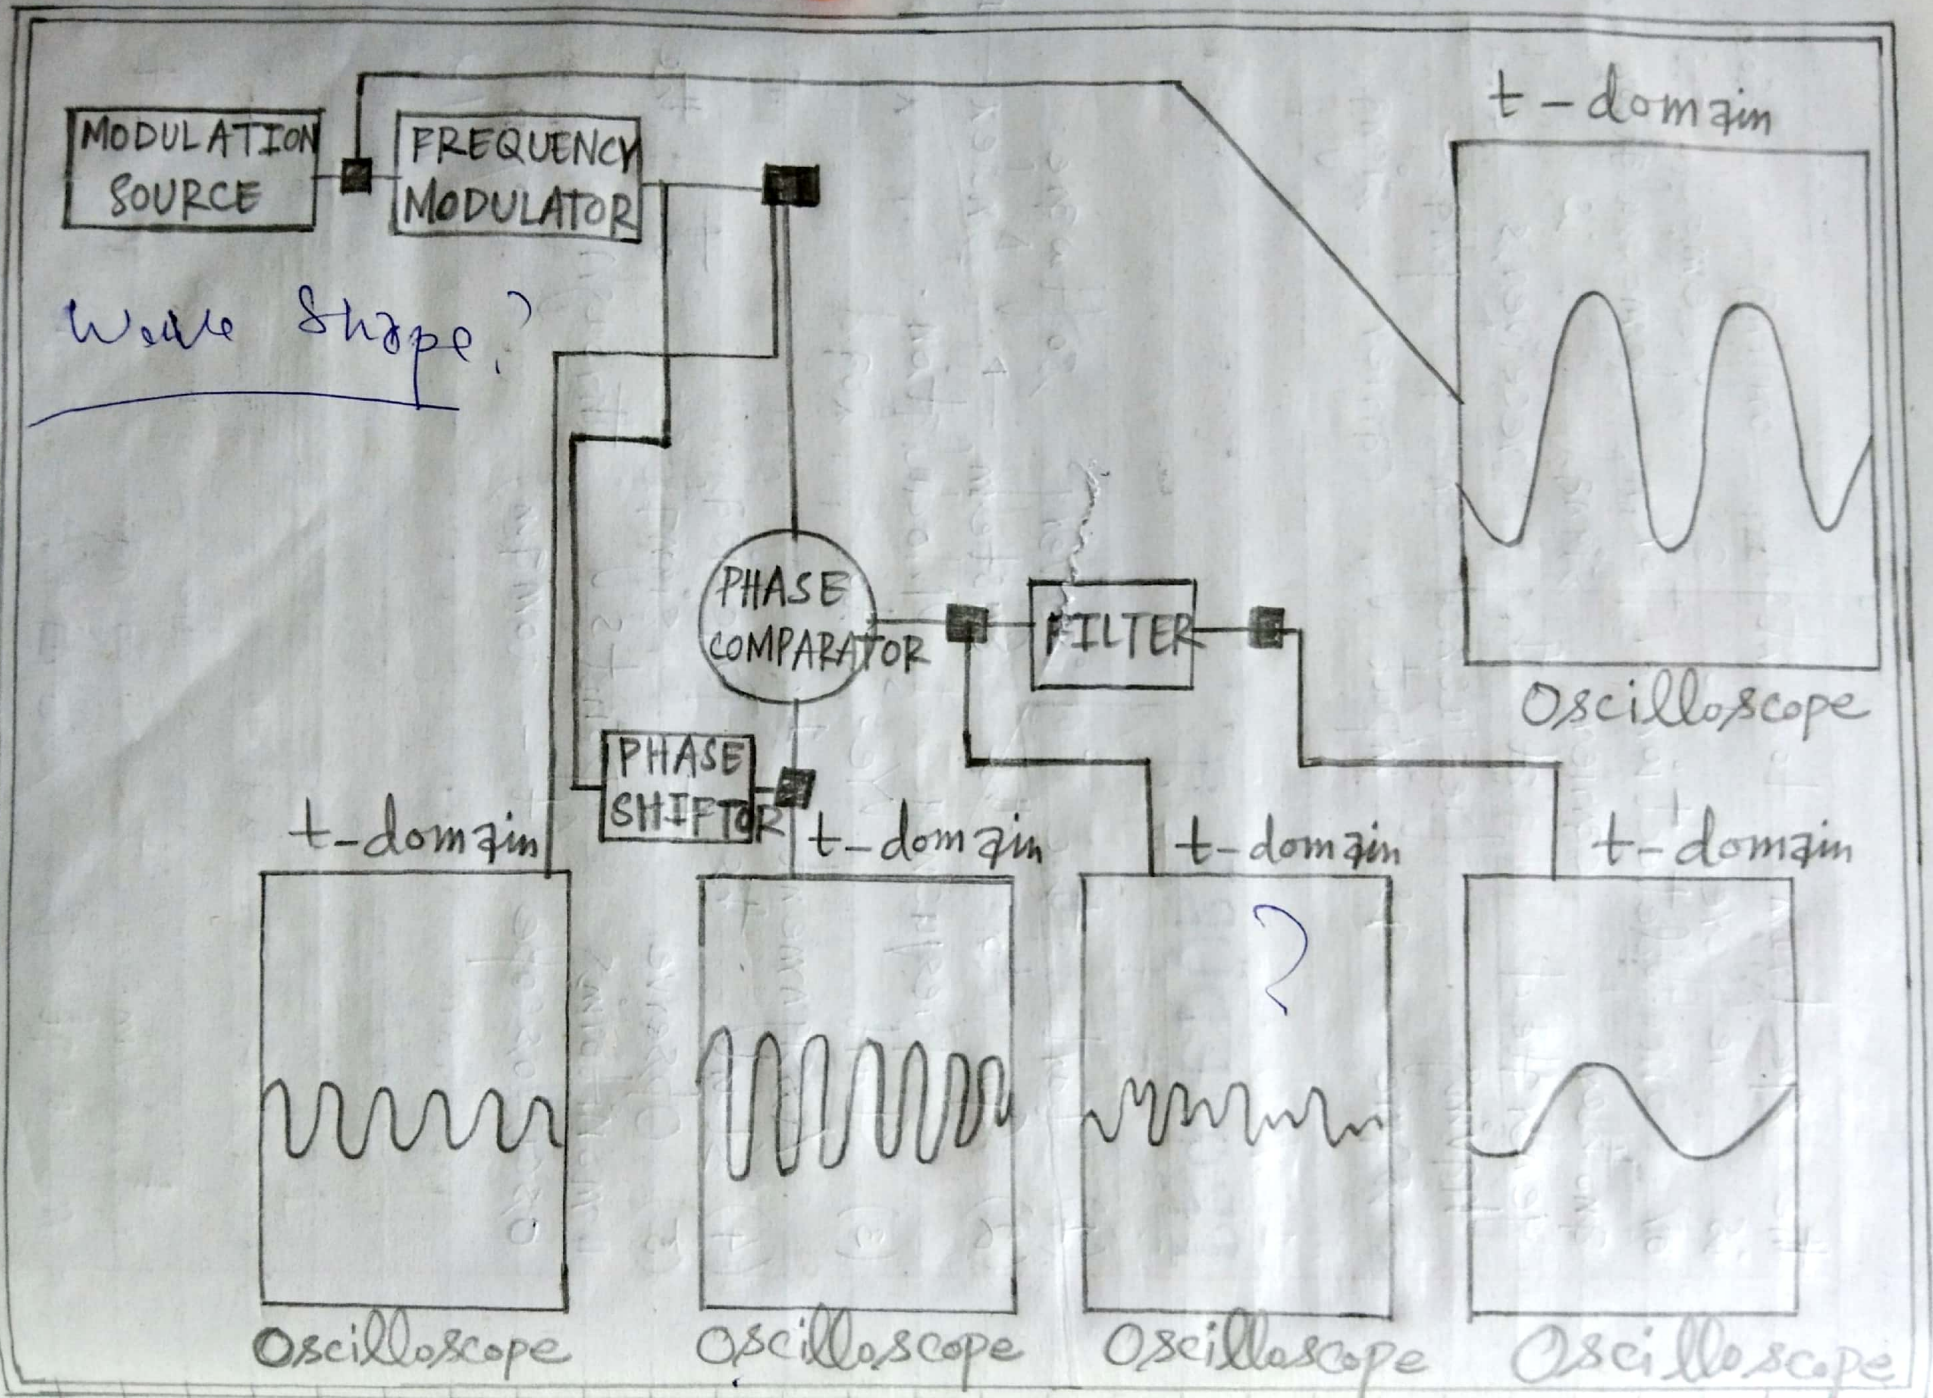 t-domain
MODULATION
SOURCE
FREQUENCY
MODULATOR
Wave Shape?
PHASE
COMPARATOR
FILTER
Oscilloscope
PHASE
SHIFTOR
t-domain
t-domain
t-domain
t-domain
?
Oscilloscope
Oscilloscope
Oscilloscope
Oscilloscope